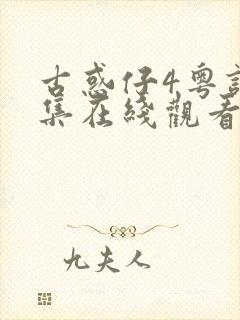 古惑仔4粤語
集在綫觀看
九夫人